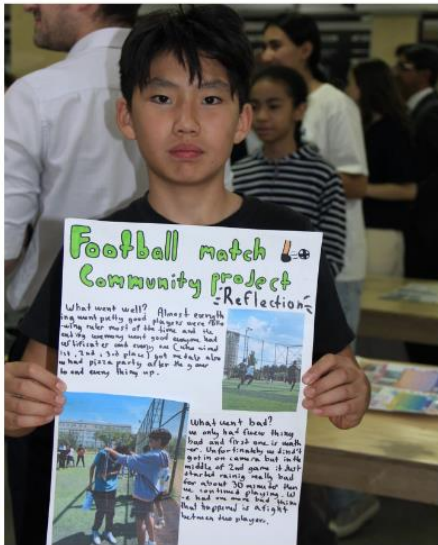 Football match
Community project
Reflection
What went well? Almost everyth
ing went pretty good players were follo
wing rules most of the time and the
everyone had
certificates and every one (who wined
1st, 2nd, 3rd place) got medals also
we had pizza party after the game
to end every thing up.
What went bad?
we only had fuew thing
bad and first one is weath
er. Unfortunately we didn't
got in on camera but in the
middle of 2nd game it just
started rainig really bad
for about 30 minutes then
we continued playing. W
e had one more bad thing
that happened is a fight
between two players.